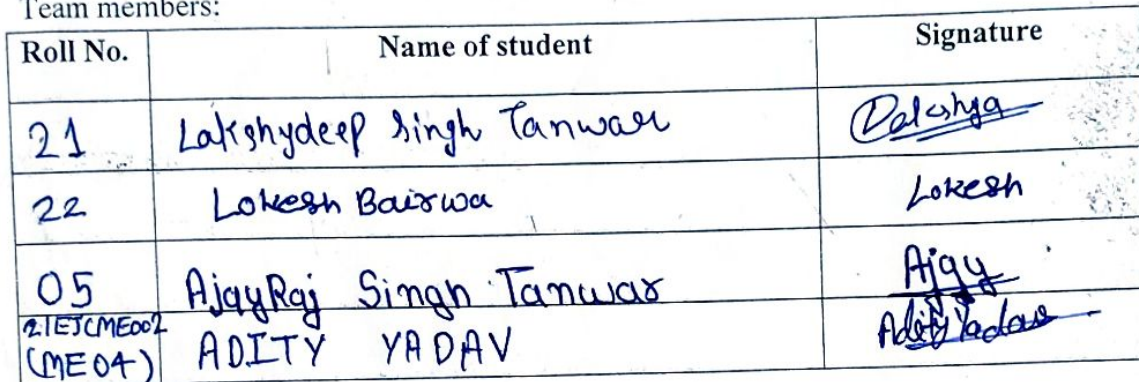 Team members:
Roll No. Name of student Signature
21 Lakshydeep Singh Tanwar Lakshya
22 Lokesh Bairwa Lokesh
05 AjayRaj Singh Tanwar Ajay
21EJCME002
(ME04) ADITY YADAV Adity Yadav